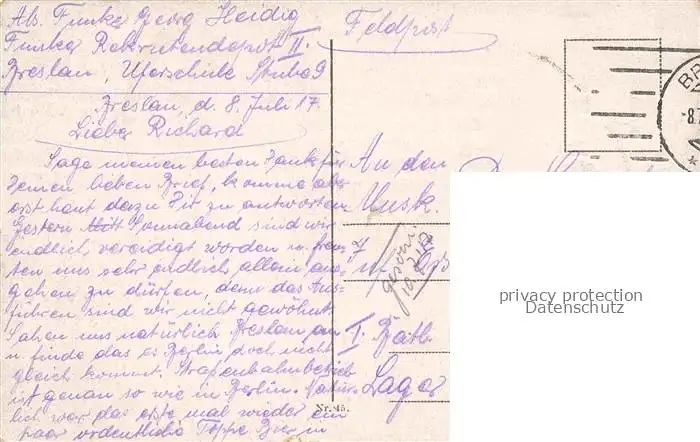 Abs. Funker Georg Heidig
Funker Rekrutendepot II.
Breslau, Uferschule Stube 9
Feldpost
Breslau, d. 8. Juli 17.
Lieber Richard
Sage meinen besten Dank für
Deinen lieben Brief, komme aber
erst heut dazu Dir zu antworten
Gestern Sonnabend sind wir
endlich vereidigt worden u. freu-
ten uns sehr endlich allein aus-
gehen zu dürfen, denn das Aus-
führen sind wir nicht gewöhnt.
Sahen uns natürlich Breslau an
u finde das es Berlin doch nicht
gleich kommt. Straßenbahnbetrieb
ist genau so wie in Berlin. Natür-
lich war das erste mal wieder ein
paar ordentliche Töppe Bier in
An den
Musk.
I. Batl.
Lager
Nr. 45.
BR
-8.
privacy protection
Datenschutz